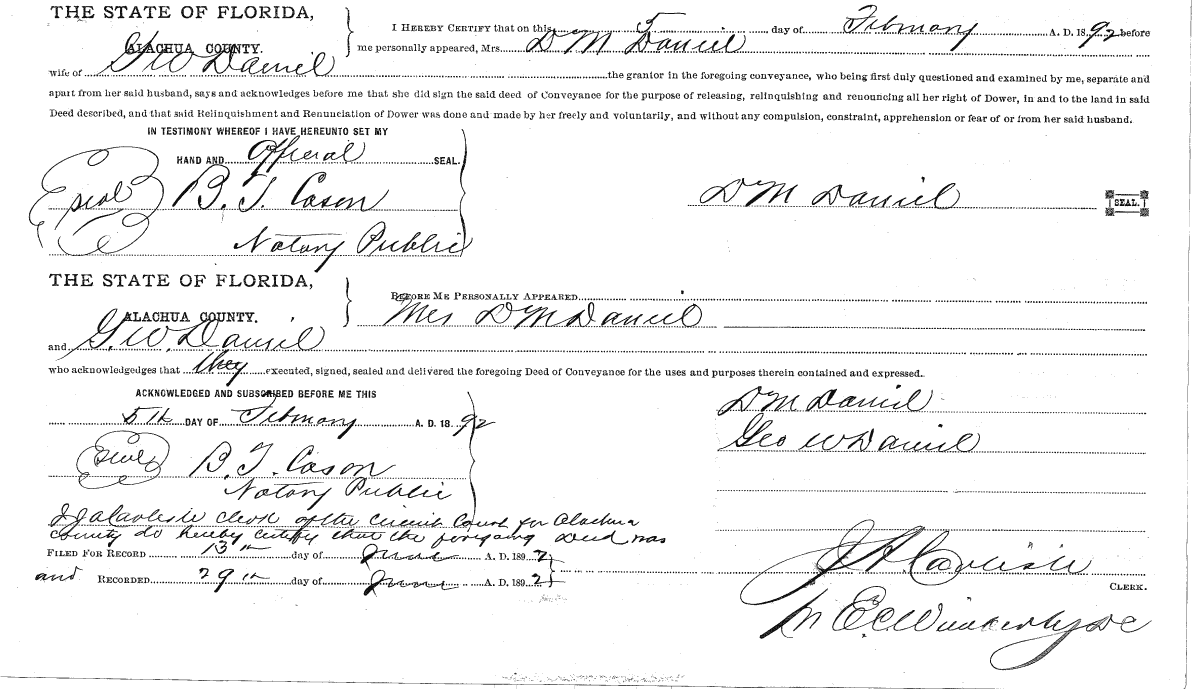 THE STATE OF FLORIDA,
ALACHUA COUNTY.
I HEREBY CERTIFY that on this 5 day of February A. D. 1892 before
me personally appeared, Mrs. D M Daniel
wife of Geo Daniel the grantor in the foregoing conveyance, who being first duly questioned and examined by me, separate and
apart from her said husband, says and acknowledges before me that she did sign the said deed of Conveyance for the purpose of releasing, relinquishing and renouncing all her right of Dower, in and to the land in said
Deed described, and that said Relinquishment and Renunciation of Dower was done and made by her freely and voluntarily, and without any compulsion, constraint, apprehension or fear of or from her said husband.
IN TESTIMONY WHEREOF I HAVE HEREUNTO SET MY
HAND AND Official SEAL.
Seal B. T. Cason
Notary Public
D M Daniel SEAL.
THE STATE OF FLORIDA,
ALACHUA COUNTY.
BEFORE ME PERSONALLY APPEARED
Mrs D M Daniel
and G. W. Daniel
who acknowledges that they executed, signed, sealed and delivered the foregoing Deed of Conveyance for the uses and purposes therein contained and expressed.
ACKNOWLEDGED AND SUBSCRIBED BEFORE ME THIS
5th DAY OF February A. D. 1892
Seal B. T. Cason
Notary Public
D M Daniel
Geo W Daniel
I J A Carlisle clerk of the Circuit Court for Alachua
County do hereby certify that the foregoing deed was
FILED FOR RECORD 13th day of June A. D. 1892
and RECORDED 29th day of June A. D. 1892
J A Carlisle
CLERK.
E C DC